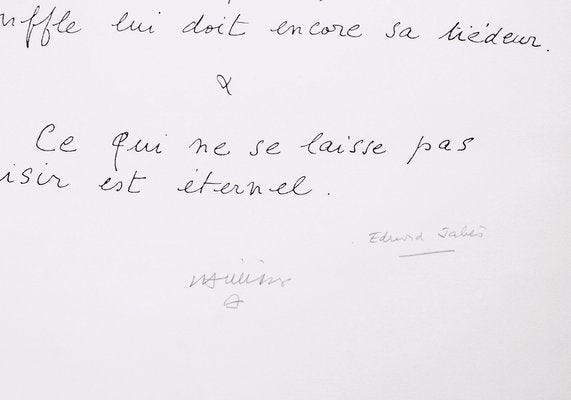 uffle lui doit encore sa tiédeur.
&
Ce qui ne se laisse pas
isir est éternel.
Edmond Jabès